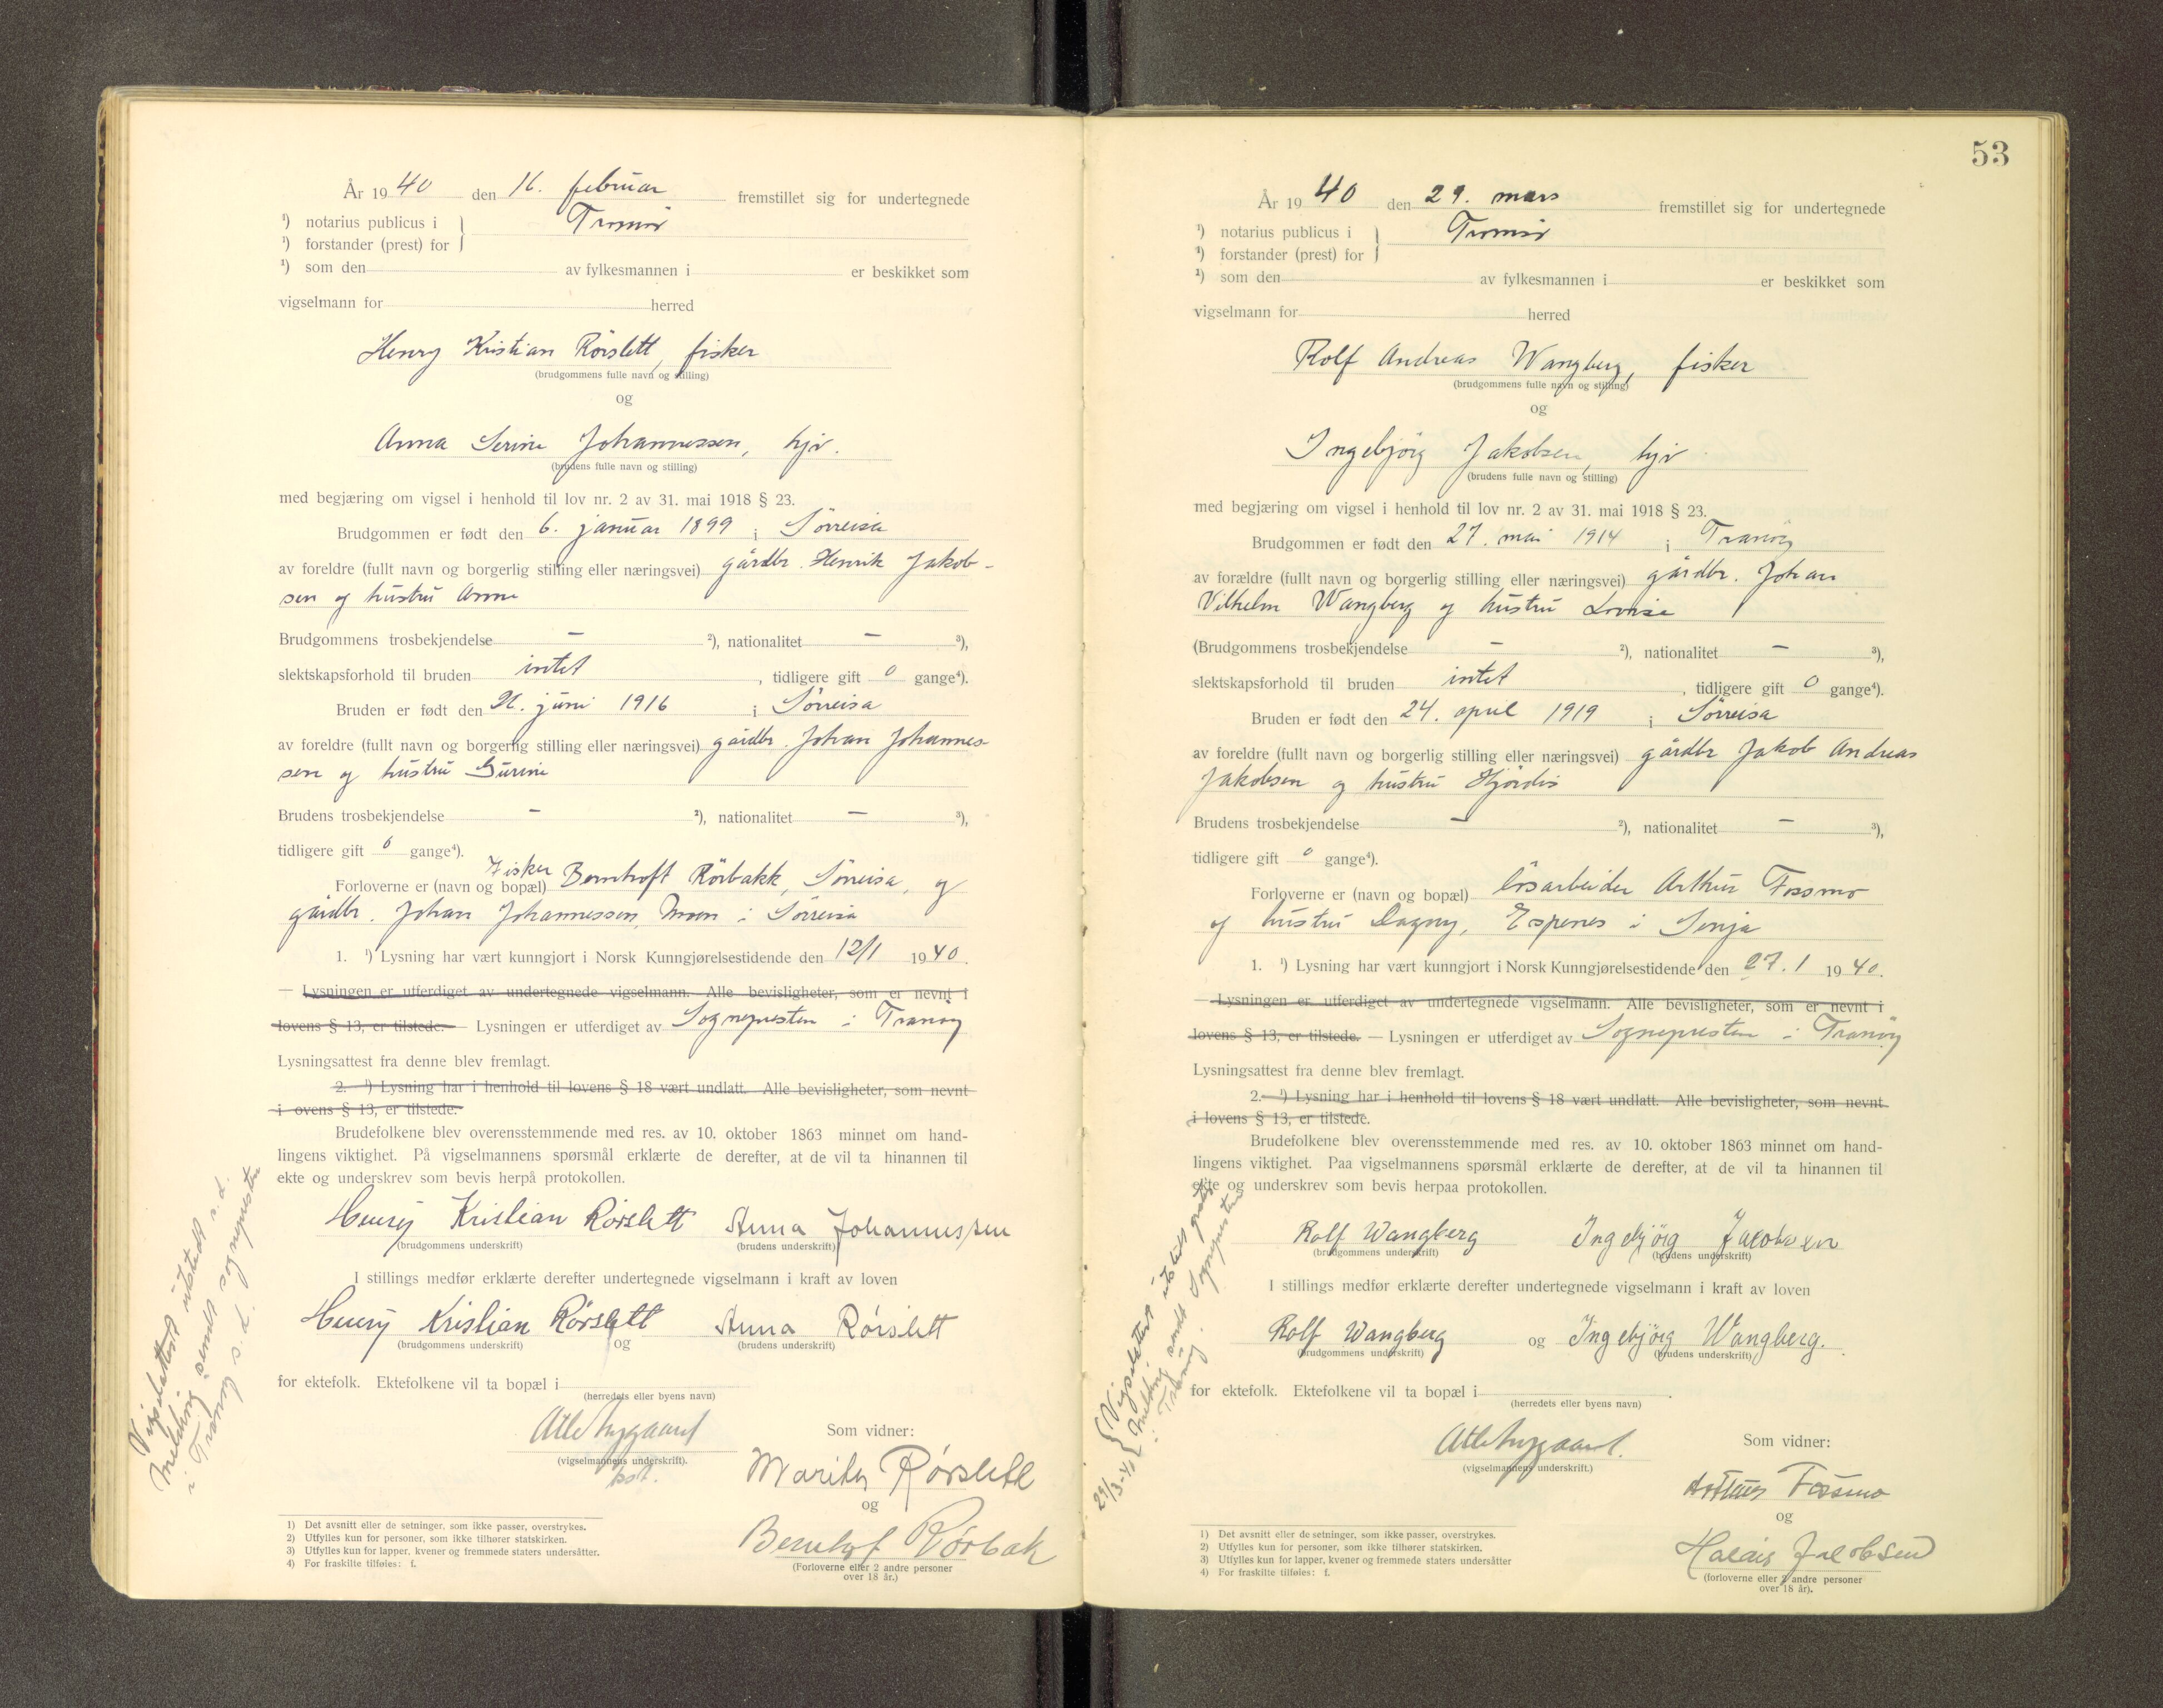 År 1940 den 16. februar fremstillet sig for undertegnede
¹) notarius publicus i } Tromsö
¹) forstander (prest) for
¹) som den av fylkesmannen i er beskikket som
vigselmann for herred
Henry Kristian Rörslett, fisker
(brudgommens fulle navn og stilling)
og
Anna Serine Johannessen, hjv.
(brudens fulle navn og stilling)
med begjæring om vigsel i henhold til lov nr. 2 av 31. mai 1918 § 23.
Brudgommen er født den 6. januar 1899 i Sörreisa
av foreldre (fullt navn og borgerlig stilling eller næringsvei) gårdbr. Henrik Jakob-
sen og hustru Anne
Brudgommens trosbekjendelse — ²), nationalitet — ³),
slektskapsforhold til bruden intet, tidligere gift 0 gange⁴).
Bruden er født den juni 1916 i Sörreisa
av foreldre (fullt navn og borgerlig stilling eller næringsvei) gårdbr. Johan Johannes-
sen og hustru
Brudens trosbekjendelse — ²), nationalitet — ³),
tidligere gift 0 gange⁴).
Forloverne er (navn og bopæl) Fisker Berntoft Rörbakk, Sörreisa, og
gårdbr. Johan Johannessen, Moen i Sörreisa
1. ¹) Lysning har vært kunngjort i Norsk Kunngjørelsestidende den 12/1 1940.
— Lysningen er utferdiget av undertegnede vigselmann. Alle bevisligheter, som er nevnt i
lovens § 13, er tilstede. — Lysningen er utferdiget av Sognepresten i Tranöy
Lysningsattest fra denne blev fremlagt.
2. ¹) Lysning har i henhold til lovens § 18 vært undlatt. Alle bevisligheter, som nevnt
i ovens § 13, er tilstede.
Brudefolkene blev overensstemmende med res. av 10. oktober 1863 minnet om hand-
lingens viktighet. På vigselmannens spørsmål erklærte de derefter, at de vil ta hinannen til
ekte og underskrev som bevis herpå protokollen.
Henry Kristian Rörslett Anna Johannessen
(brudgommens underskrift) (brudens underskrift)
I stillings medfør erklærte derefter undertegnede vigselmann i kraft av loven
Henry Kristian Rörslett og Anna Rörslett
(brudgommens underskrift) (brudens underskrift)
for ektefolk. Ektefolkene vil ta bopæl i
(herredets eller byens navn)
Atle Nygaard
(vigselmannens underskrift).
bst.
Som vidner:
Marites Rørslett
og
Berntof Rørbak
(Forloverne eller 2 andre personer
over 18 år.)
Vigselattest utstedt s.d.
Melding sendt sognepresten
i Tranöy s.d.
1) Det avsnitt eller de setninger, som ikke passer, overstrykes.
2) Utfylles kun for personer, som ikke tilhører statskirken.
3) Utfylles kun for lapper, kvener og fremmede staters undersåtter.
4) For fraskilte tilføies: f.
53
År 1940 den 29. mars fremstillet sig for undertegnede
¹) notarius publicus i } Tromsö
¹) forstander (prest) for
¹) som den av fylkesmannen i er beskikket som
vigselmann for herred
Rolf Andreas Wangberg, fisker
(brudgommens fulle navn og stilling)
og
Ingebjörg Jakobsen, hjv
(brudens fulle navn og stilling)
med begjæring om vigsel i henhold til lov nr. 2 av 31. mai 1918 § 23.
Brudgommen er født den 27. mai 1914 i Tranöy
av forældre (fullt navn og borgerlig stilling eller næringsvei) gårdbr. Johan
Vilhelm Wangberg og hustru Lovise
(Brudgommens trosbekjendelse — ²), nationalitet — ³),
slektskapsforhold til bruden intet, tidligere gift 0 gange⁴).
Bruden er født den 24. april 1919 i Sörreisa
av foreldre (fullt navn og borgerlig stilling eller næringsvei) gårdbr Jakob Andreas
Jakobsen og hustru Hjördis
Brudens trosbekjendelse — ²), nationalitet — ³),
tidligere gift 0 gange⁴).
Forloverne er (navn og bopæl) lösarbeider Arthur Fossmo
og hustru Dagny, Espenes i Senja
1. ¹) Lysning har vært kunngjort i Norsk Kunngjørelsestidende den 27.1 1940.
— Lysningen er utferdiget av undertegnede vigselmann. Alle bevisligheter, som er nevnt i
lovens § 13, er tilstede. — Lysningen er utferdiget av Sognepresten i Tranöy
Lysningsattest fra denne blev fremlagt.
2. ¹) Lysning har i henhold til lovens § 18 vært undlatt. Alle bevisligheter, som nevnt
i lovens § 13, er tilstede.
Brudefolkene blev overensstemmende med res. av 10. oktober 1863 minnet om hand-
lingens viktighet. Paa vigselmannens spørsmål erklærte de derefter, at de vil ta hinannen til
ekte og underskrev som bevis herpaa protokollen.
Rolf Wangberg Ingebjörg Jacobsen
(brudgommens underskrift) (brudens underskrift)
I stillings medfør erklærte derefter undertegnede vigselmann i kraft av loven
Rolf Wangberg og Ingebjörg Wangberg.
(brudgommens underskrift) (brudens underskrift)
for ektefolk. Ektefolkene vil ta bopæl i
(herredets eller byens navn)
Atle Nygaard.
(vigselmannens underskrift.)
Som vidner:
Arthur Fossmo
og
Jacobsen
(forloverne eller 2 andre personer
over 18 år).
Vigselattest utstedt gratis
Melding sendt Sognepresten
Tranöy.
1) Det avsnitt eller de setninger, som ikke passer, overstrykes.
2) Utfylles kun for personer, som ikke tilhører statskirken.
3) Utfylles kun for lapper, kvener og fremmede staters undersåtter
4) For fraskilte tilføies: f.